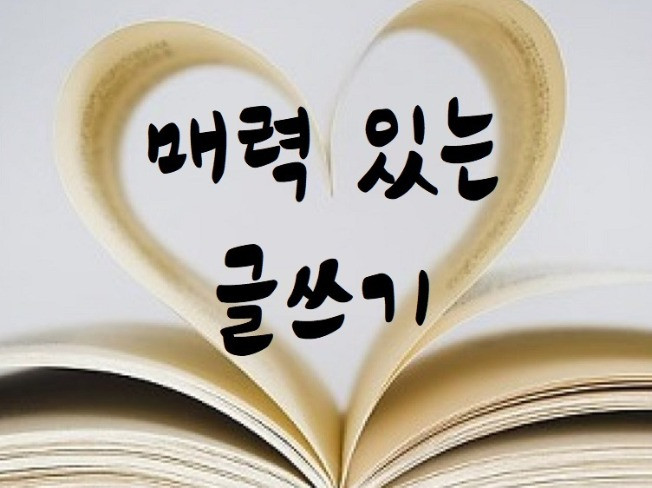 매력 있는
글쓰기